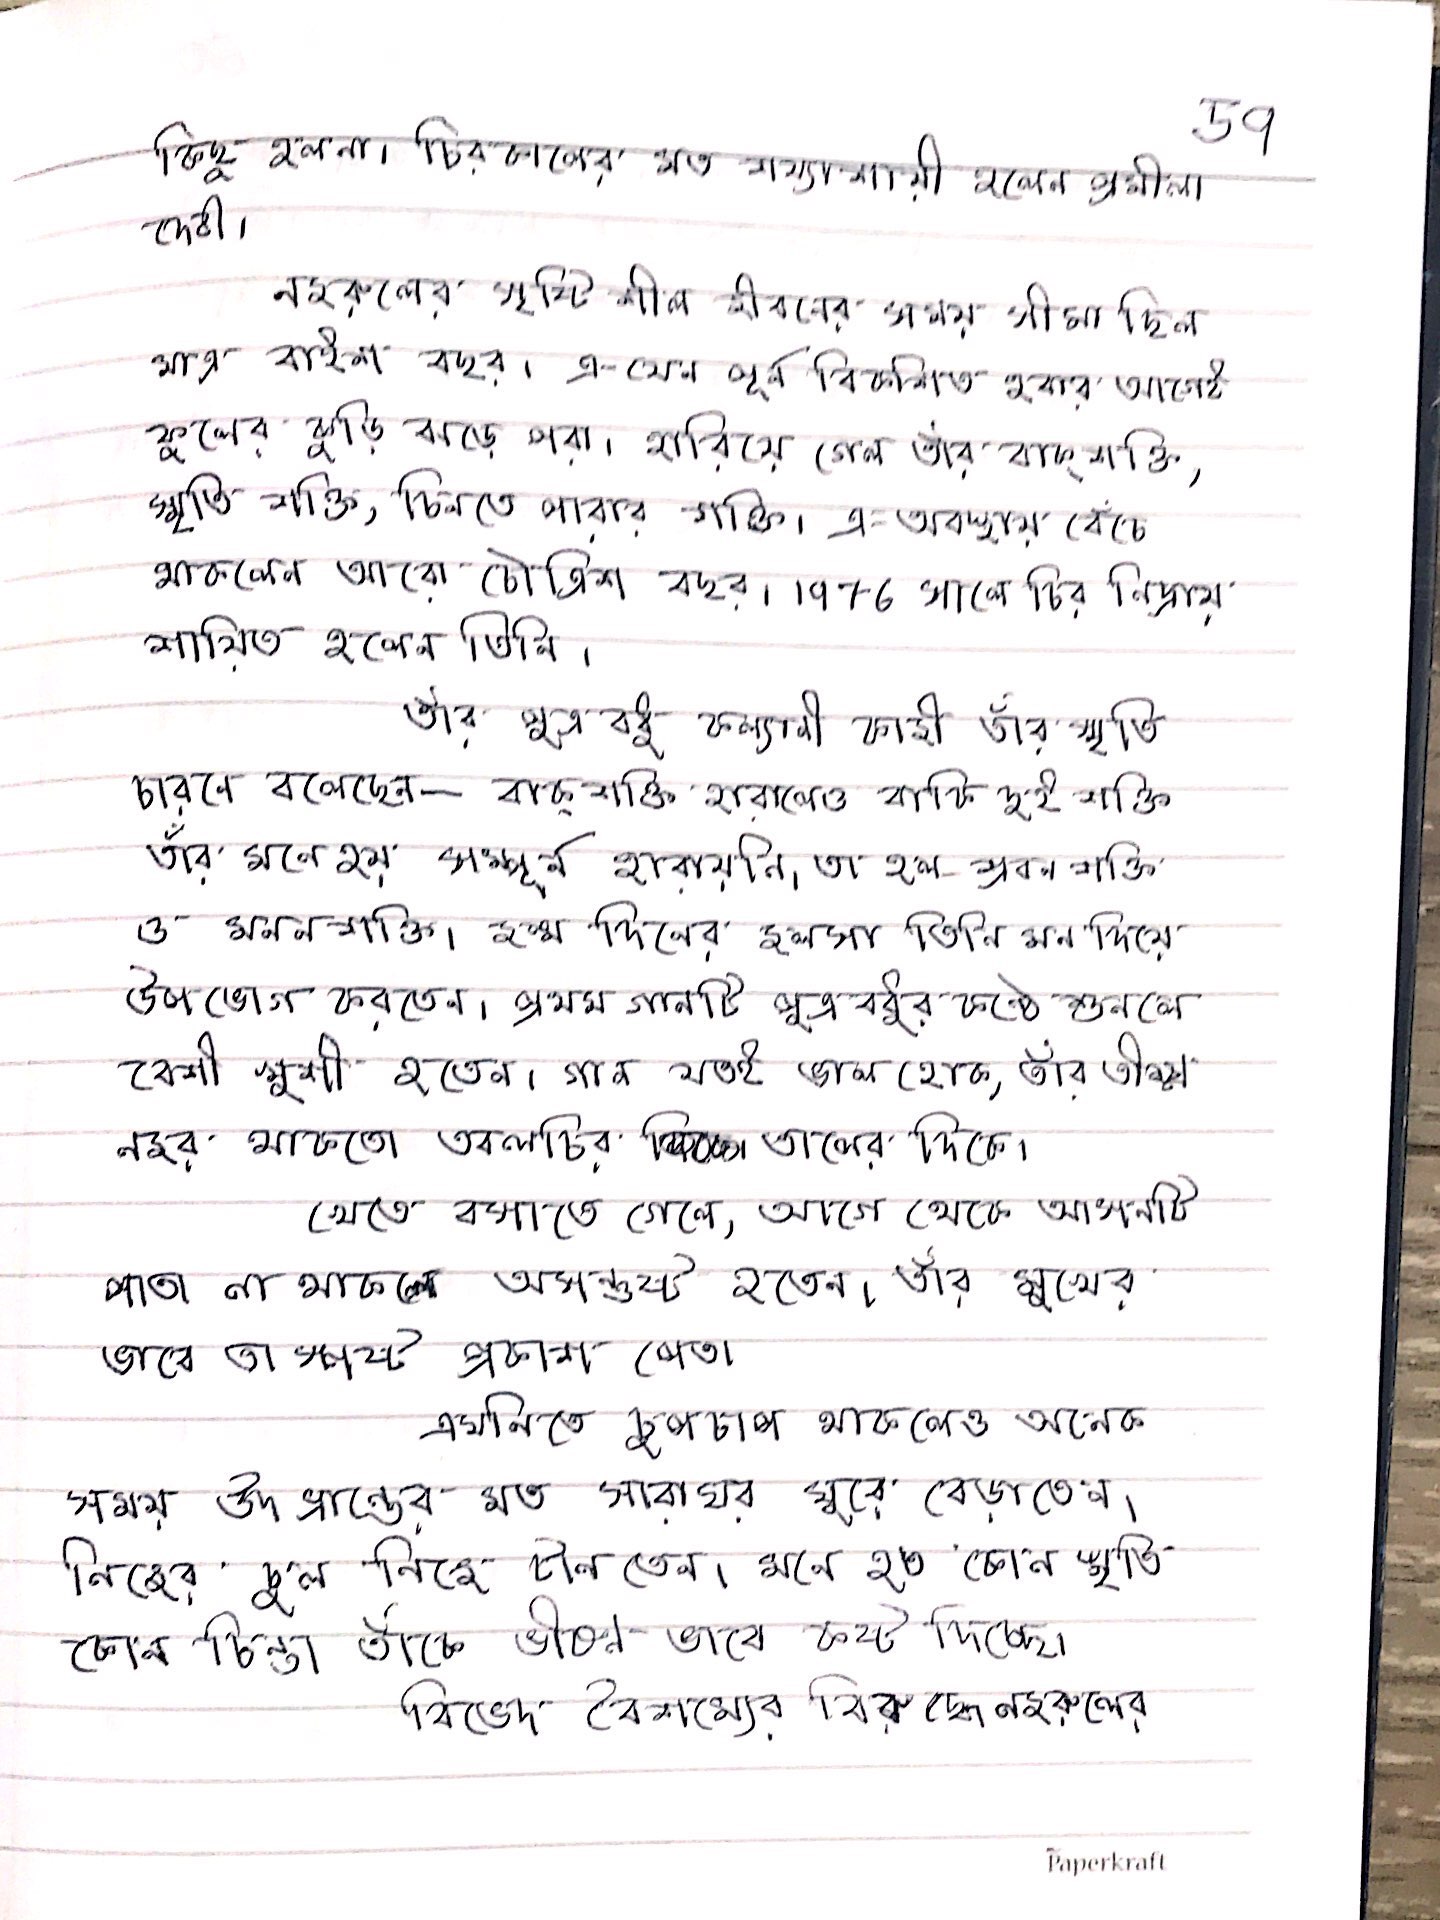 ৬৭
কিছু হলনা। চিরকালের মত শয্যাশায়ী হলেন প্রমীলা
দেবী।
নজরুলের সৃষ্টি শীল জীবনের সময় সীমা ছিল
মাত্র বাইশ বছর। এ-যেন পূর্ন বিকশিত হবার আগেই
ফুলের কুড়ি ঝড়ে পরা। হারিয়ে গেল তাঁর বাক্‌শক্তি,
স্মৃতি শক্তি, চিনতে পারার শক্তি। এ-অবস্থায় বেঁচে
থাকলেন আরো চৌত্রিশ বছর। ১৯৭৬ সালে চির নিদ্রায়
শায়িত হলেন তিনি।
তাঁর পুত্র বধু কল্যানী কাজী তাঁর স্মৃতি
চারনে বলেছেন— বাক্‌শক্তি হারালেও বাকি দুই শক্তি
তাঁর মনে হয় সম্পূর্ন হারায়নি, তা হল-শ্রবন শক্তি
ও মননশক্তি। জন্ম দিনের জলসা তিনি মন দিয়ে
উপভোগ করতেন। প্রথম গানটি পুত্র বধুর কন্ঠে শুনলে
বেশী খুশী হতেন। গান যতই ভাল হোক, তাঁর তীক্ষ্ণ
নজর থাকতো তবলচির তালের দিকে।
খেতে বসাতে গেলে, আগে থেকে আসনটি
পাতা না থাকলে অসন্তুষ্ট হতেন। তাঁর মুখের
ভাবে তা স্পষ্ট প্রকাশ পেত।
এমনিতে চুপচাপ থাকলেও অনেক
সময় উদ ভ্রান্তের মত সারাঘর ঘুরে বেড়াতেন।
নিজের চুল নিজে টানতেন। মনে হত কোন স্মৃতি
কোন চিন্তা তাঁকে ভীষন ভাবে কষ্ট দিচ্ছে।
বিভেদ বৈশম্যের বিরুদ্ধে নজরুলের
Paperkraft